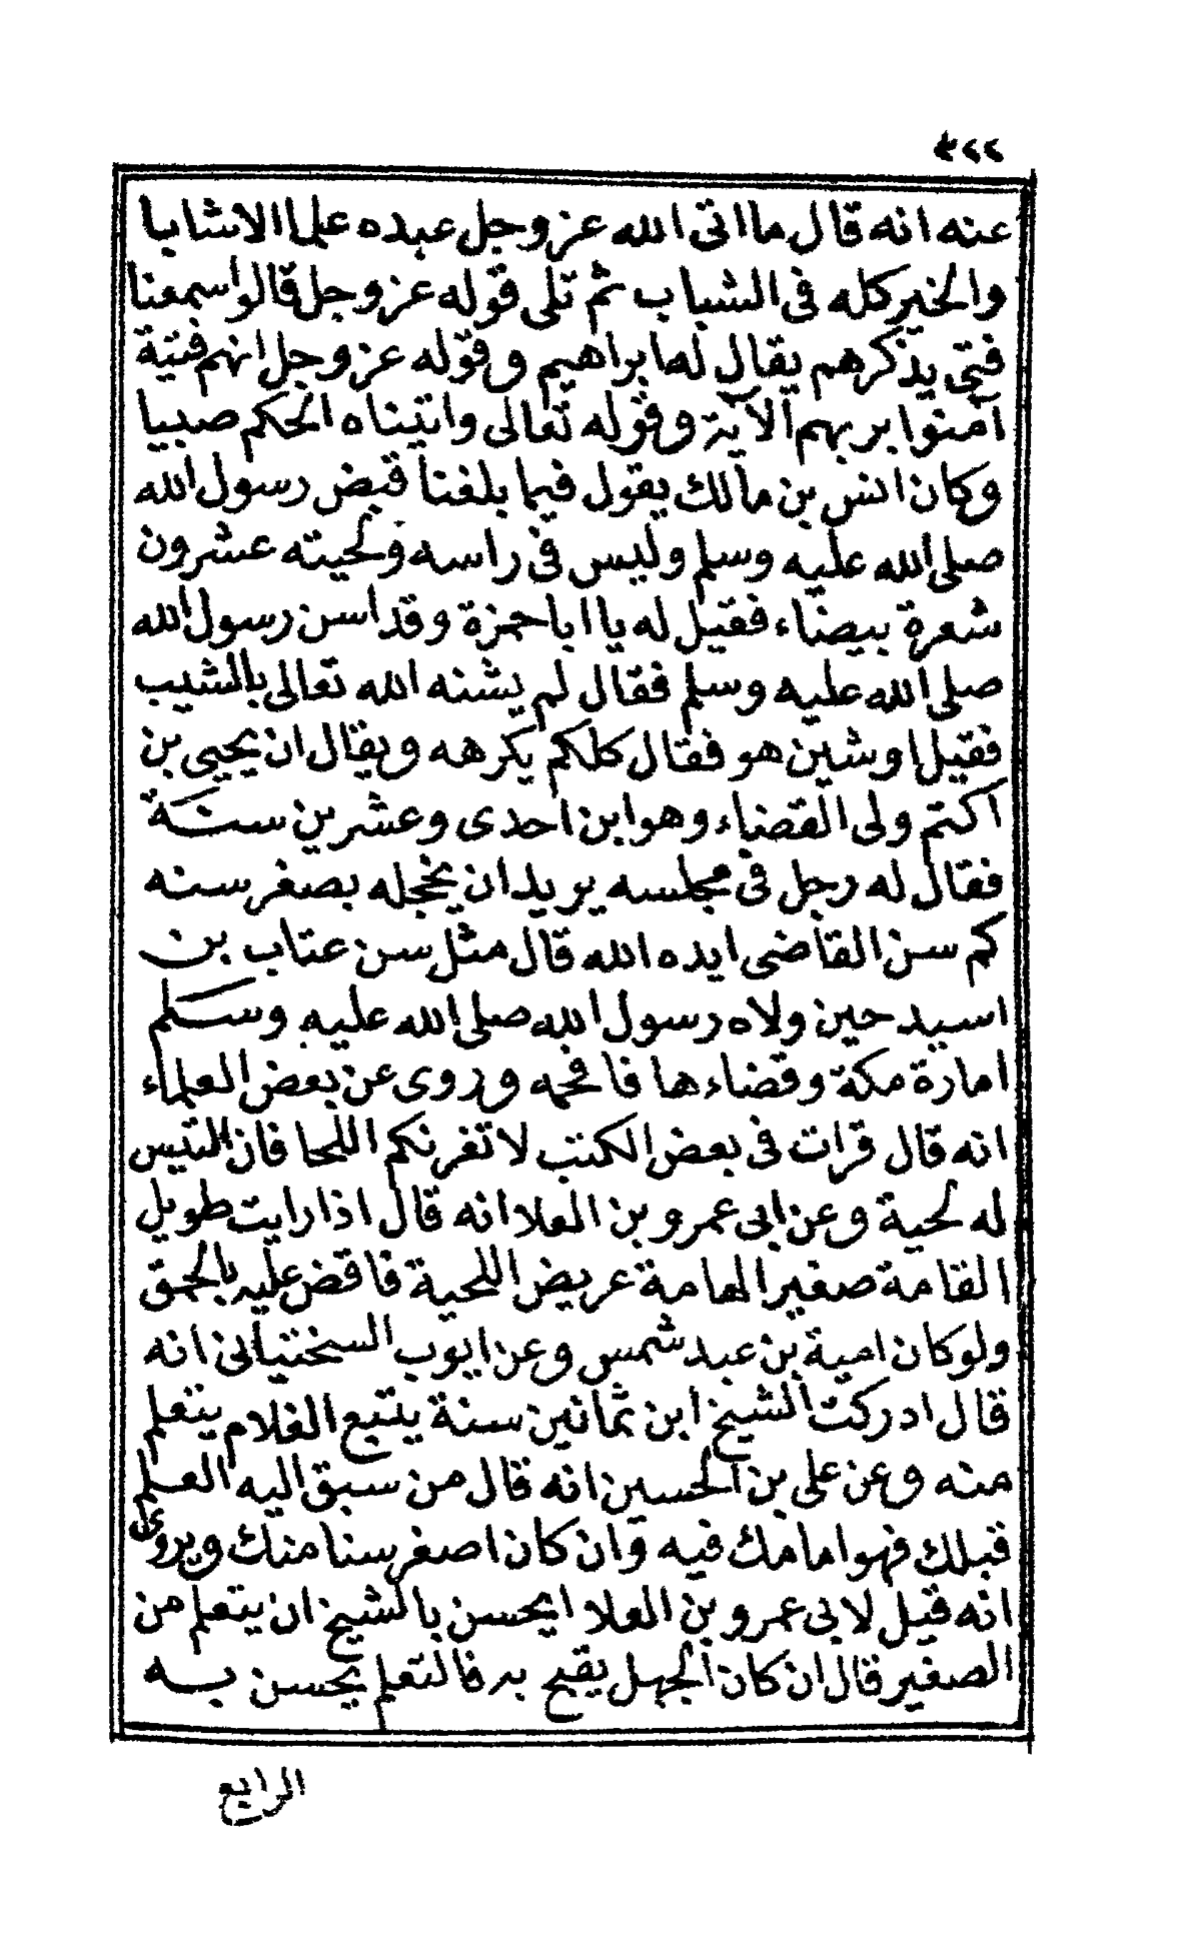 عنه انه قال ما اتى الله عز وجل عبده علما الا شابا
والخير كله فى الشباب ثم تلى قوله عز وجل قالوا سمعنا
فتى يذكرهم يقال له ابراهيم وقوله عز وجل انهم فتية
آمنوا بربهم الآية وقوله تعالى واتيناه الحكم صبيا
وكان انس بن مالك يقول فيما بلغنا قبض رسول الله
صلى الله عليه وسلم وليس فى راسه ولحيته عشرون
شعرة بيضاء فقيل له يا ابا حمزة وقد اسن رسول الله
صلى الله عليه وسلم فقال لم يشنه الله تعالى بالشيب
فقيل اوشين هو فقال كلكم يكرهه ويقال ان يحيى بن
اكتم ولى القضاء وهو ابن احدى وعشرين سنة
فقال له رجل فى مجلسه يريد ان يخجله بصغر سنه
كم سن القاضى ايده الله قال مثل سن عتاب بن
اسيد حين ولاه رسول الله صلى الله عليه وسلم
امارة مكة وقضاءها فافحمه وروى عن بعض العلماء
انه قال قرات فى بعض الكتب لا تغرنكم اللحا فان التيس
له لحية وعن ابى عمرو بن العلا انه قال اذا رايت طويل
القامة صغير الهامة عريض اللحية فاقض عليه بالحمق
ولو كان امية بن عبد شمس وعن ايوب السختيانى انه
قال ادركت الشيخ ابن ثمانين سنة يتبع الغلام يتعلم
منه وعن على بن الحسين انه قال من سبق اليه العلم
قبلك فهو امامك فيه وان كان اصغر سنا منك ويروى
انه قيل لابى عمرو بن العلا ايحسن بالشيخ ان يتعلم من
الصغير قال ان كان الجهل يقبح به فالتعلم يحسن به
الرابع